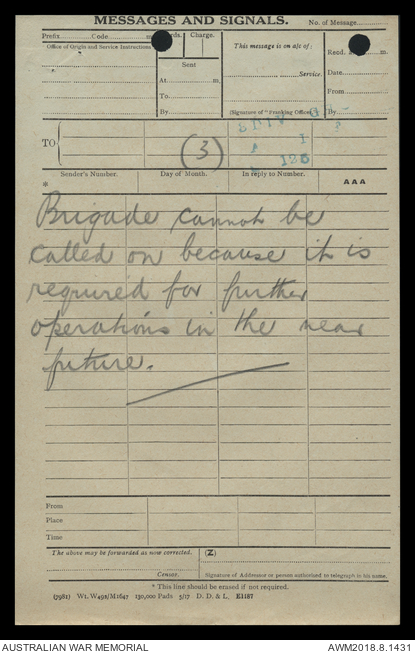 MESSAGES AND SIGNALS.
No. of Message
Prefix Code m
Charge.
This message is on a/c of:
Recd. m.
Office of Origin and Service Instructions
Sent
Date
At m.
Service.
To
From
By
(Signature of "Franking Officer")
By
TO
(3)
I
126
Sender's Number.
Day of Month.
In reply to Number.
*
AAA
Brigade cannot be
called on because it is
required for further
operations in the near
future.
From
Place
Time
The above may be forwarded as now corrected.
(Z)
Censor.
Signature of Addressor or person authorised to telegraph in his name.
* This line should be erased if not required.
(7981) Wt. W492/M1647 130,000 Pads 5/17 D. D. & L. E1187
AUSTRALIAN WAR MEMORIAL
AWM2018.8.1431